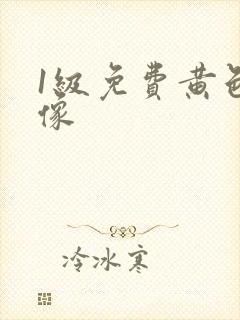 1級免費黃色
像
冷冰寒